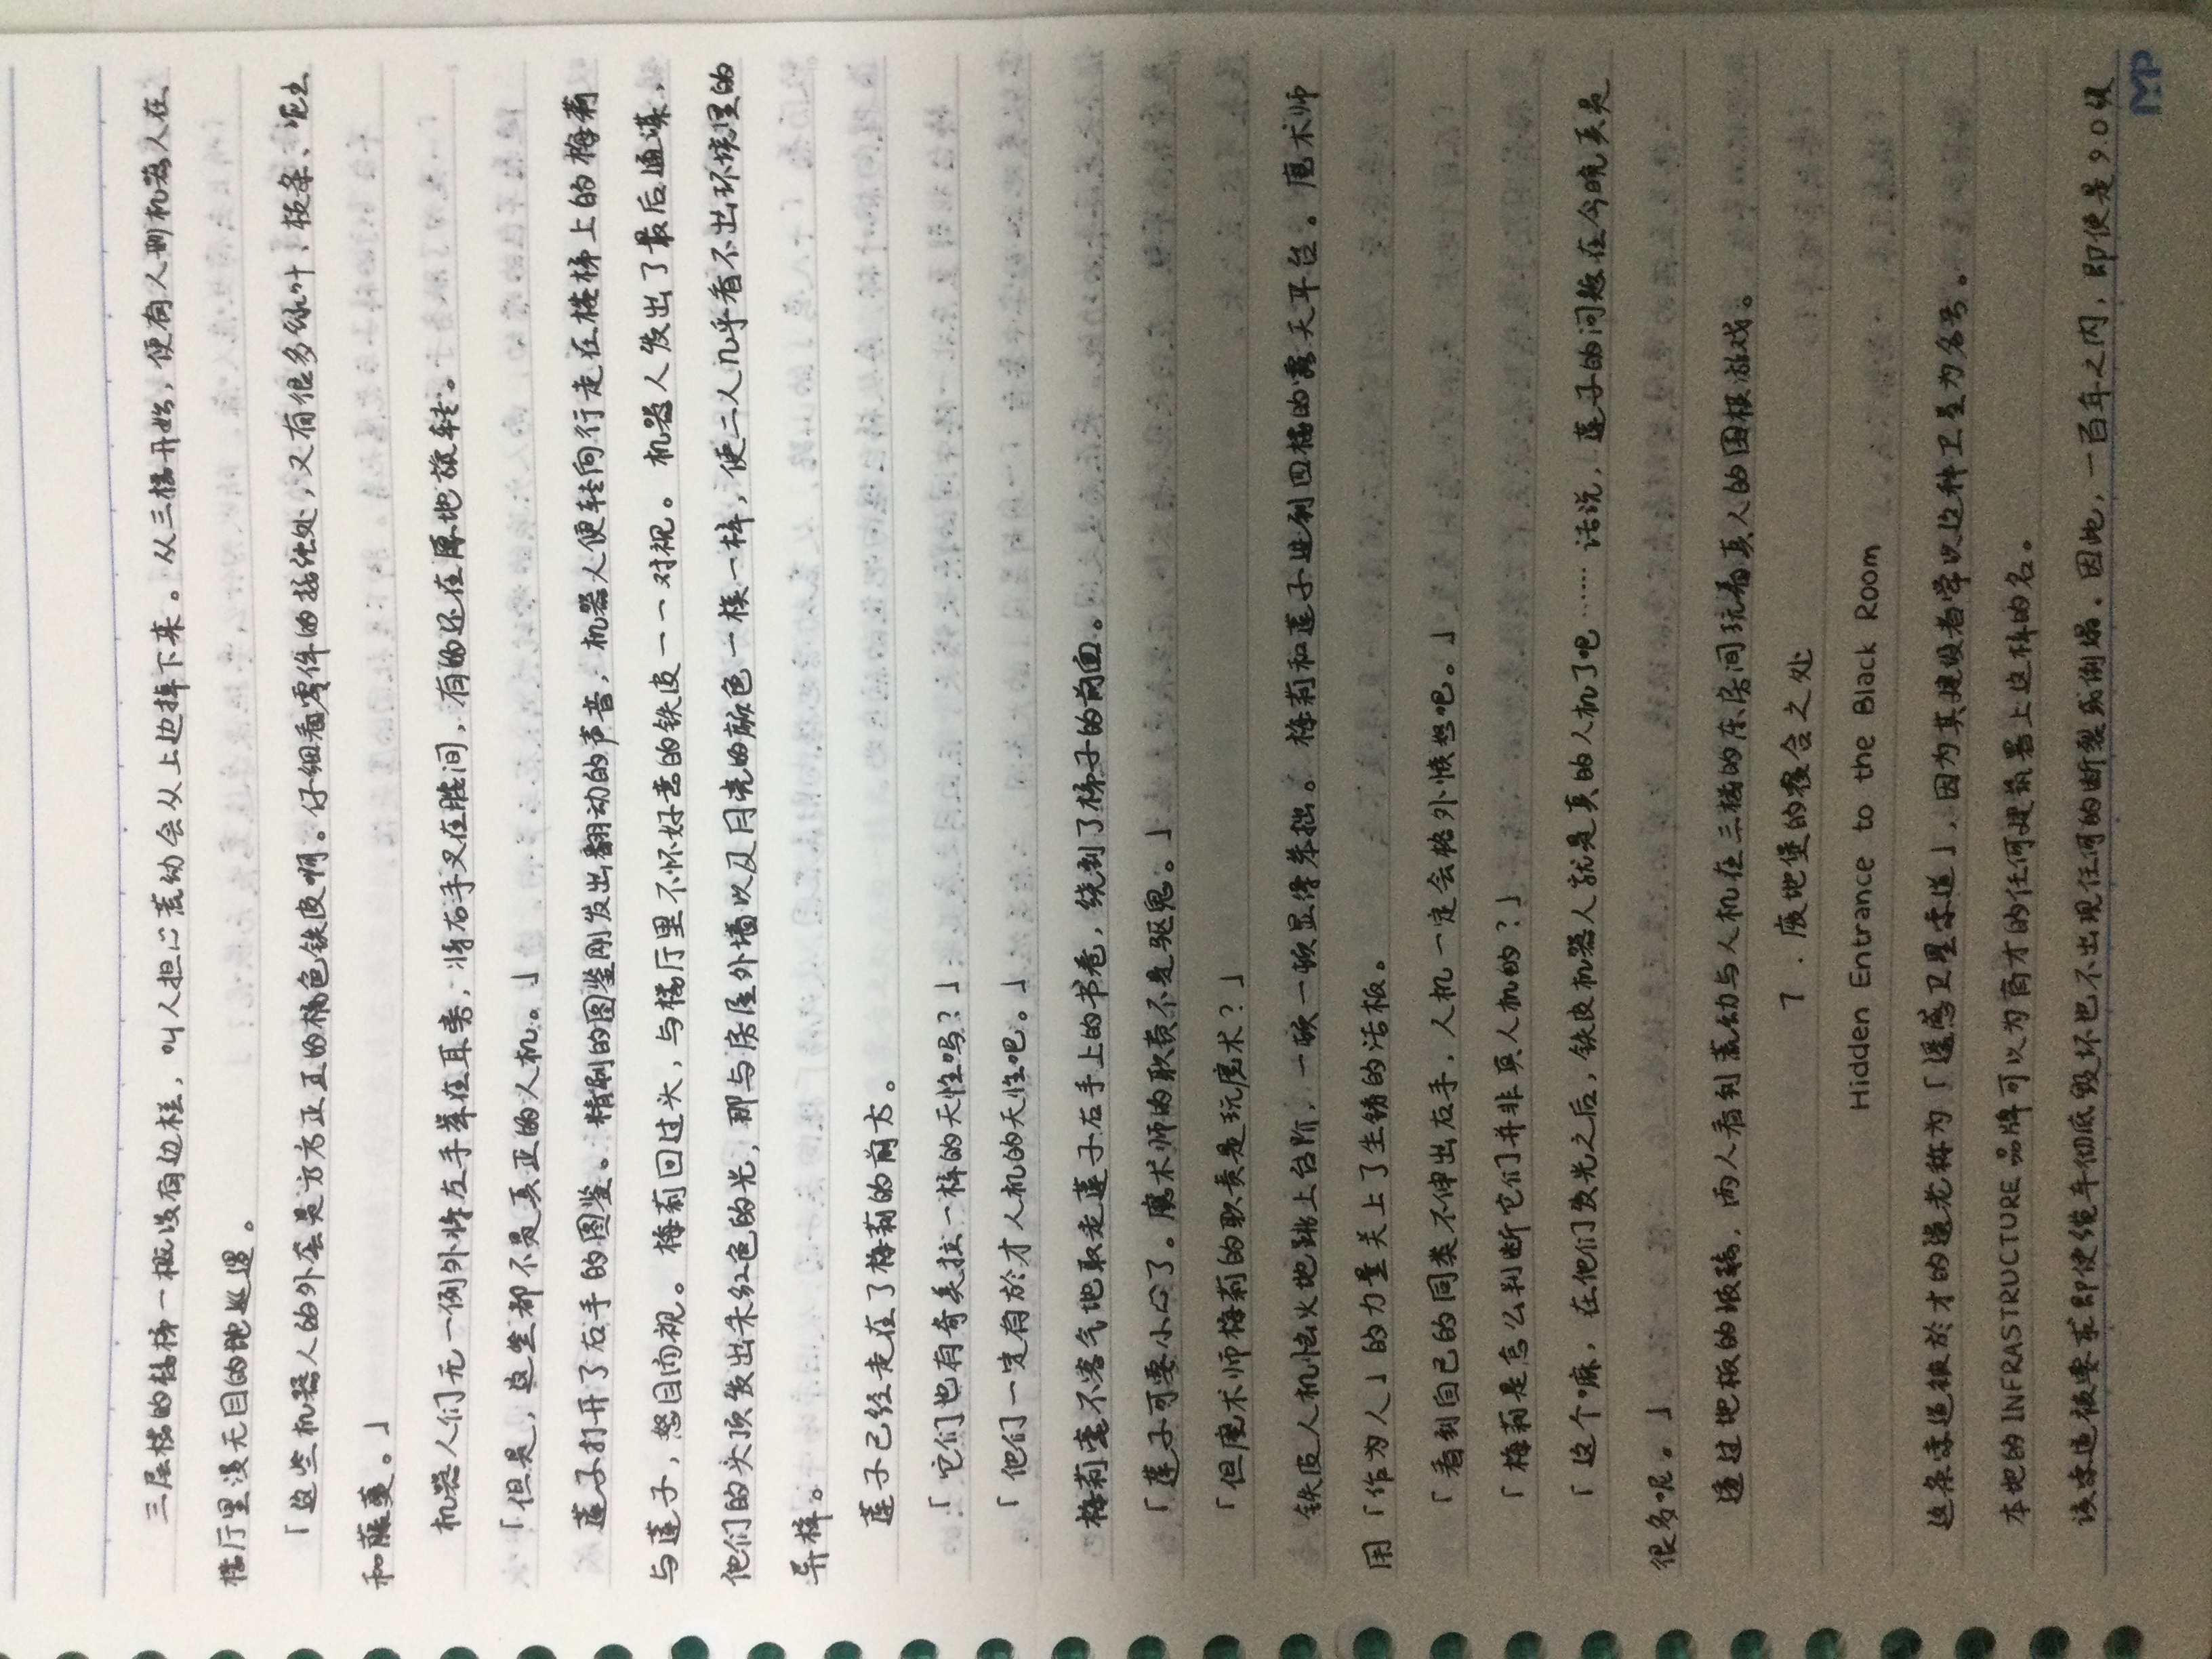 三层楼的楼梯一概没有边栏，叫人担心荒动会从上边掉下来。从三楼开始，便有人形机器人在
楼厅里漫无目的地巡逻。
「这些机器人的外套是方方正正的橘色铁皮啊。仔细看零件的接缝处，又有很多绿叶、枝条、泥土
和藤蔓。」
机器人们无一例外将左手举在耳旁，将右手叉在腰间，有的还在原地旋转。
「但是，这些都不是真正的人机。」
莲子打开了右手的图鉴。精刷的图鉴刚发出翻动的声音，机器人便转向行走在楼梯上的梅莉
与莲子，怒目而视。梅莉回过头，与楼厅里不怀好意的铁皮一一对视。机器人发出了最后通谍，
他们的头顶发出朱红色的光，那与房屋外墙以及月亮的颜色一模一样，使二人几乎看不出环境里的
异样。
莲子已经走在了梅莉的前方。
「它们也有奇美拉一样的天性吗？」
「他们一定有於才人机的天性吧。」
梅莉毫不客气地取走莲子右手上的书卷，绕到了梯子的前面。
「莲子可要小心了。魔术师的职责不是驱鬼。」
「但魔术师梅莉的职责是玩魔术？」
铁皮人机恼火地跳上台阶，一顿一顿显得笨拙。梅莉和莲子进到四楼的露天平台。魔术师
用「作为人」的力量关上了生锈的活板。
「看到自己的同类不伸出右手，人机一定会格外愤怒吧。」
「梅莉是怎么判断它们并非真人机的？」
「这个嘛，在他们发光之后，铁皮机器人就是真的人机了吧……话说，莲子的问题在今晚真是
很多呢。」
透过地板的玻璃，两人看到荒动与人机在三楼的东房间玩着真人的围棋游戏。
7．废地堡的覆合之处
Hidden Entrance to the Black Room
这条索道被於才的遗老称为「遥感卫星索道」，因为其建设者常以这种卫星为名号。
本地的INFRASTRUCTURE品牌可以为育才的任何建筑署上这样的名。
该索道被要求即使缆车彻底毁坏也不出现任何的断裂或倒塌。因此，一百年之内，即使是9.0级
MP